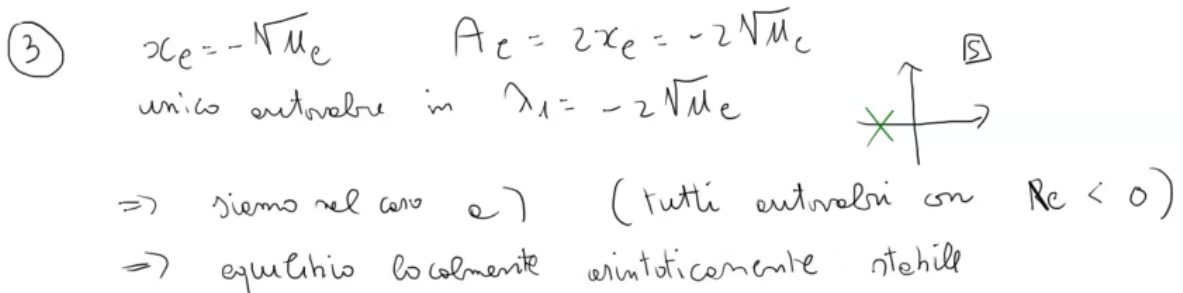 ③ xe = -√ue Ae = 2xe = -2√ue
unico autovalore in λ1 = -2√ue
[S]
=> siamo nel caso a) (tutti autovalori con Re < 0)
=> equilibrio localmente asintoticamente stabile